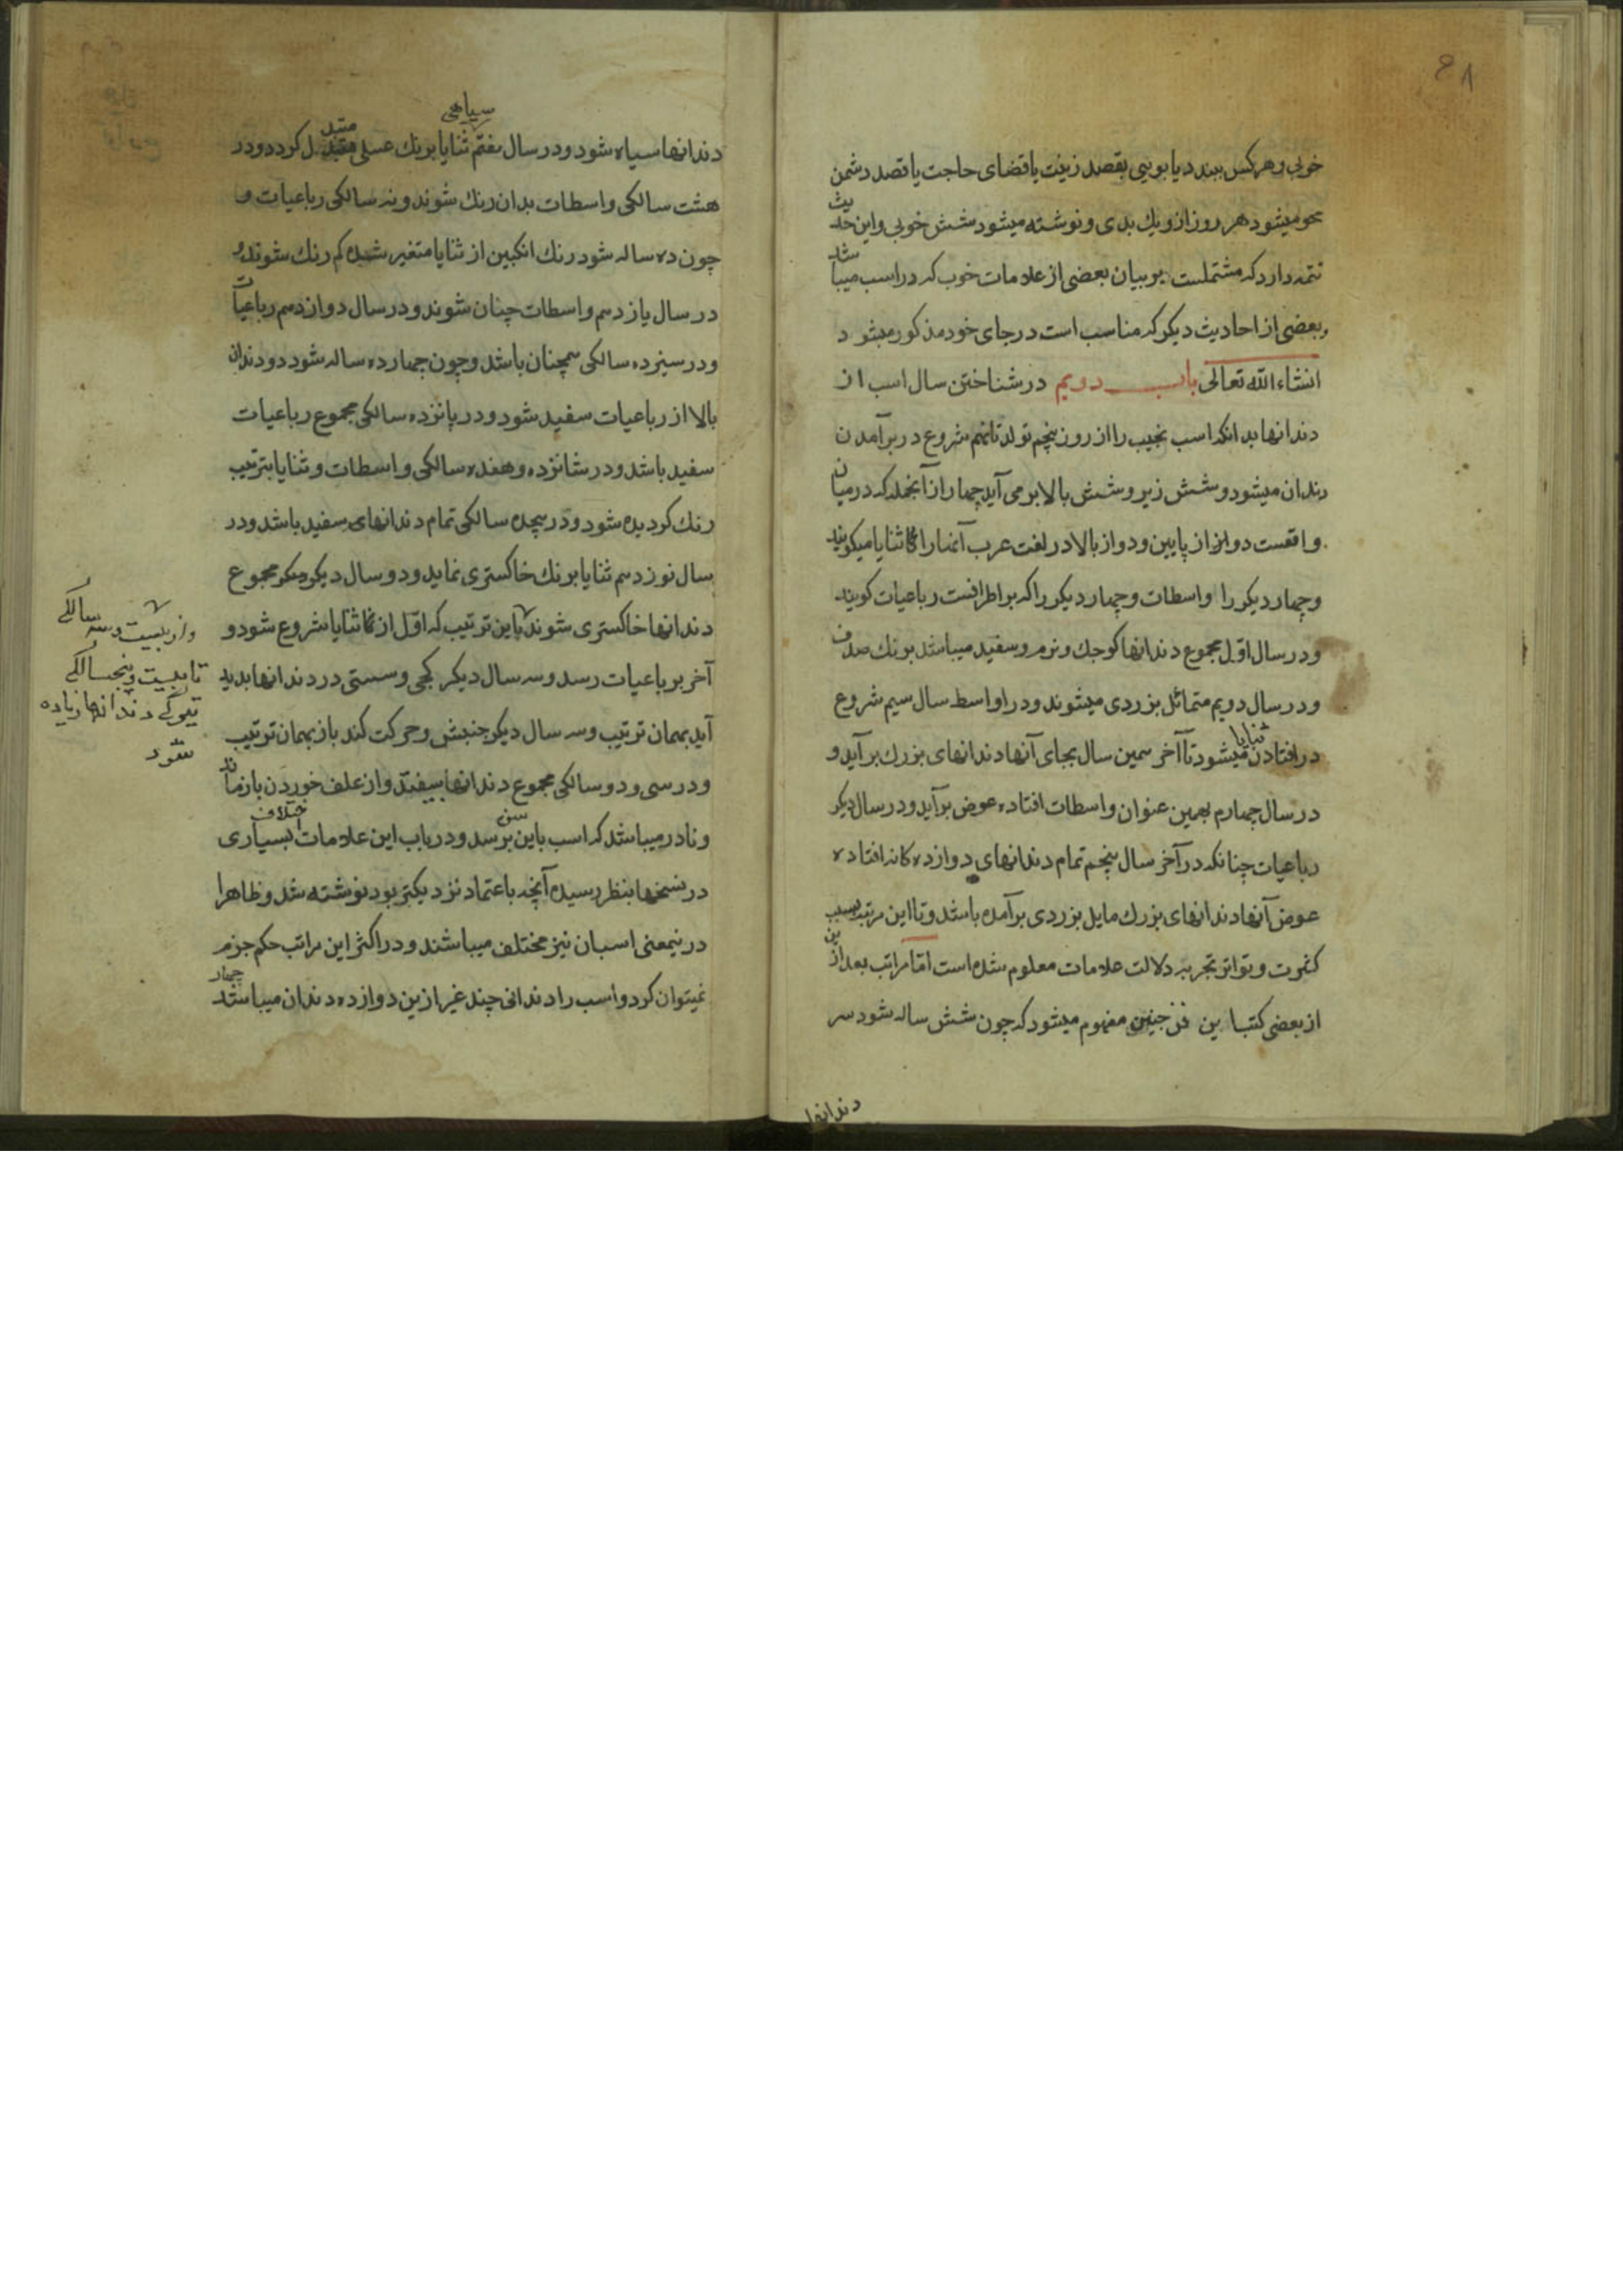 خوبی و هر کس ببندد یابویی بقصد زینت یا قضای حاجت یا قصد دشمن
محو میشود هر روز ازو یک بدی و نوشته میشود شش خوبی و این حدیث
تتمه دارد که مشتملست بر بیان بعضی از علامات خوب که در اسب میباشد
و بعضی از احادیث دیگر که مناسب است در جای خود مذکور میشود
انشاء الله تعالی باب دویم در شناختن سال اسب از
دندانها بدانکه اسب نجیب را از روز پنجم تولد تا نهم شروع در برآمدن
دندان میشود و شش زیر و شش بالا بر می آید چهار از آنجمله که در میان
واقعست دو از پایین و دو از بالا در لغت عرب آنها را ثنایا میکویند
و چهار دیکر را واسطات و چهار دیکر را که بر اطرافست رباعیات کویند
و در سال اول مجموع دندانها کوچک و نرم و سفید میباشد برنک صدف
و در سال دویم متمائل بزردی میشوند و در اواسط سال سیم شروع
در افتادن ثنایا میشود تا آخر سمین سال بجای آنها دندانهای بزرک برآید و
در سال چهارم بهمین عنوان واسطات افتاده عوض برآید و در سال دیکر
رباعیات چنانکه در آخر سال پنجم تمام دندانهای دوازده کانه افتاده
عوض آنها دندانهای بزرك مایل بزردی برآمده باشد و تا این مرتبه بسبب
کثرت و تواتر تجربه دلالت علامات معلوم شده است اما مراتب بعد ازین
از بعضی کتب این فن چنین مفهوم میشود که چون شش ساله شود سر
دندانها
دندانها سیاه شود و در سال هفتم سیاهی ثنایا برنك عسلی متبدل کردد و در
هشت سالکی واسطات بدان رنك شوند و نه سالکی رباعیات و
چون ده ساله شود رنك انکبین از ثنایا متغیر شده کم رنك شوند و
در سال یازدهم واسطات چنان شوند و در سال دوازدهم رباعیات
و در سیزده سالکی همچنان باشد و چون چهارده ساله شود دو دندان
بالا از رباعیات سفید شود و در پانزده سالکی مجموع رباعیات
سفید باشد و در شانزده و هفده سالکی واسطات و ثنایا بترتیب
رنك کردیده شود و در هیجده سالکی تمام دندانهای سفید باشد و در
سال نوزدهم ثنایا برنك خاکستری نماید و دو سال دیکر مجموع
دندانها خاکستری شوند باین ترتیب که اول از ثنایا شروع شود و
آخر برباعیات رسد و سه سال دیکر کجی و سستی در دندانها بدید
آید بهمان ترتیب و سه سال دیکر جنبش و حرکت کند باز بهمان ترتیب
و در سی و دو سالکی مجموع دندانها بیفتد و از علف خوردن باز ماند
و نادر میباشد که اسب باین سن برسد و در باب این علامات اختلاف بسیاری
در نسخها بنظر رسیده آنچه باعتماد نزدیکتر بود نوشته شد و ظاهرا
درینمعنی اسبان نیز مختلف میباشند و در اکثر این مراتب حکم جزم
نمیتوان کرد و اسب را دندانی چند غیر ازین دوازده دندان میباشد چهار
و از بیست و سه سالکی
تا بیست و پنجسالکی
تیرکی دندانها زیاده
شود